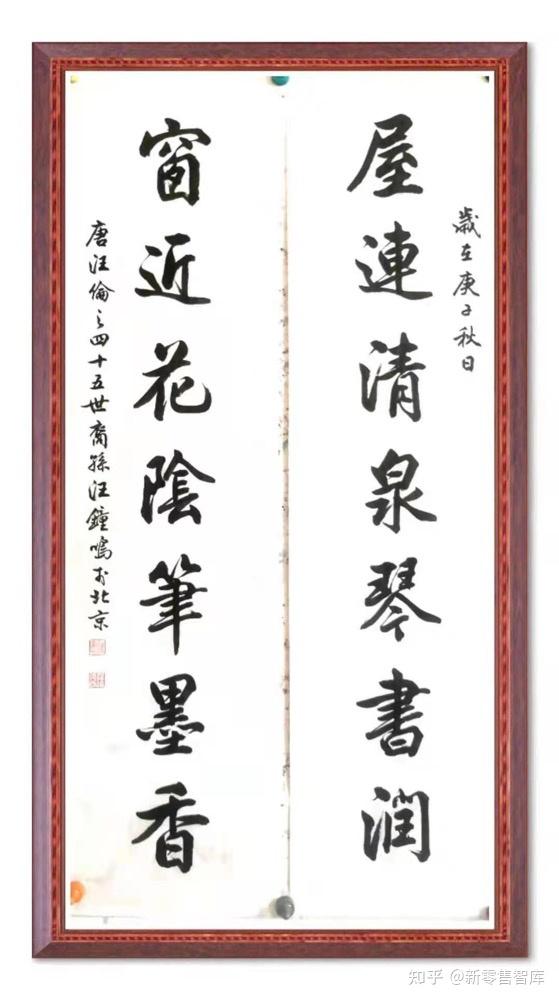 歲在庚子秋日
屋連清泉琴書潤
窗近花陰筆墨香
唐汪倫之四十五世裔孫汪鐘鳴於北京
知乎 @新零售智库